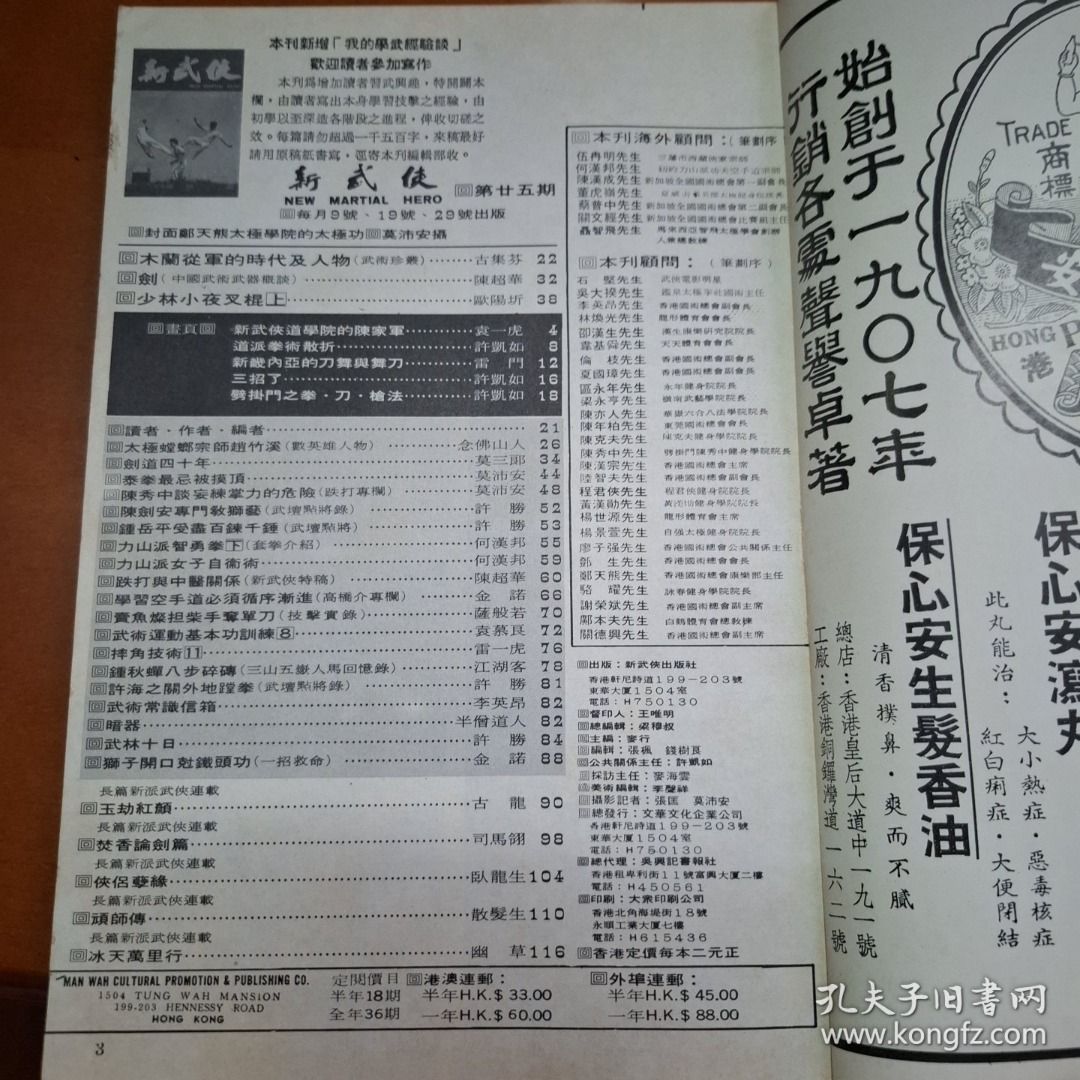 本刊新增「我的學武經驗談」
歡迎讀者參加寫作
本刊爲增加讀者習武興趣，特開闢本
欄，由讀者寫出本身學習技擊之經驗，由
初學以至深造各階段之進程，俾收切磋之
效。每篇請勿超過一千五百字，來稿最好
請用原稿紙書寫，逕寄本刊編輯部收。
新武俠
新武俠
NEW MARTIAL HERO
回第廿五期
回每月9號、19號、29號出版
回封面鄭天熊太極學院的太極功回莫沛安攝
回木蘭從軍的時代及人物(武術珍叢)…古集芬 22
回劍(中國武術武器概談)…陳超華 32
回少林小夜叉棍上…歐陽圻 38
回畫頁回 新武俠道學院的陳家軍…袁一虎 4
道派拳術散折…許凱如 8
新畿內亞的刀舞與舞刀…雷門 12
三招了…許凱如 16
劈掛門之拳·刀·槍法…許凱如 18
回讀者·作者·編者…21
回太極螳螂宗師趙竹溪(數英雄人物)…念佛山人 26
回劍道四十年…莫三郎 34
回泰拳最忌被摸頂…莫沛安 44
回陳秀中談妄練掌力的危險(跌打專欄)…莫沛安 48
回陳劍安專門教獅藝(武壇點將)…許勝 52
回鍾岳平受盡百鍊千錘(武壇點將)…許勝 53
回力山派智勇拳下(套拳介紹)…何漢邦 55
回力山派女子自衞術…何漢邦 59
回跌打與中醫關係(新武俠特稿)…陳超華 60
回學習空手道必須循序漸進(高橋介專欄)…金諾 66
回賣魚燦担柴手奪單刀(技擊實錄)…薩般若 70
回武術運動基本功訓練8…袁慕良 72
回摔角技術11…雷一虎 76
回鍾秋蟬八步碎磚(三山五嶽人馬回憶錄)…江湖客 78
回許海之關外地蹚拳(武壇點將錄)…許勝 81
回武術常識信箱…李英昂 82
回暗器…半僧道人 82
回武林十日…許勝 84
回獅子開口尅鐵頭功(一招救命)…金諾 88
長篇新派武俠連載
回玉劫紅顏…古龍 90
長篇新派武俠連載
回焚香論劍篇…司馬翎 98
長篇新派武俠連載
回俠侶孽緣…臥龍生 104
長篇新派武俠連載
回頑師傳…散髮生 110
長篇新派武俠連載
回冰天萬里行…幽草 116
回本刊海外顧問：(筆劃序
伍冉明先生
何漢邦先生
陳漢成先生 新加坡全國國術總會第一副會長
董虎嶺先生
蔡普中先生 新加坡全國國術總會第二副會長
關文經先生 新加坡全國國術總會比賽組主任
聶智飛先生 馬來西亞聶智飛太極學會創辦
人兼總教練
回本刊顧問：(筆劃序)
石堅先生 武俠電影明星
吳大揆先生 鑑泉太極拳社國術主任
李英昂先生 香港國術總會副會長
林煥光先生 龍形體育會會長
邵漢生先生 漢生康樂硏究院院長
韋基舜先生 天天體育會會長
倫枝先生 香港國術總會副會長
夏國璋先生 香港國術總會副會長
區永年先生 永年健身院院長
梁永亨先生 嶺南武藝學院院長
陳亦人先生 華嶽六合八法學院院長
陳年柏先生 東莞國術總會會長
陳克夫先生 陳克夫健身學院院長
陳秀中先生 劈掛門陳秀中健身學院院長
陳漢宗先生 香港國術總會主席
陸智夫先生 香港國術總會副會長
程君俠先生 程君俠健身院院長
黃漢勛先生 黃漢勛健身學院院長
楊世源先生 龍形體育會主席
楊景萱先生 自强太極健身院院長
廖子强先生 香港國術總會公共關係主任
鄧生先生 香港國術總會副會長
鄭天熊先生 香港國術總會康樂部主任
駱耀先生 詠春健身學院院長
謝榮斌先生 香港國術總會副主席
鄺本夫先生 白鶴體育會總教練
關德興先生 香港國術總會副主席
回出版：新武俠出版社
香港軒尼詩道199-203號
東華大厦1504室
電話：H750130
回督印人：王唯明
回總編輯：梁穆叔
回主編：麥行
回編輯：張楓 錢樹良
回公共關係主任：許凱如
回採訪主任：麥海雲
回美術編輯：李聲祥
回攝影記者：張匡 莫沛安
回總發行：文華文化企業公司
香港軒尼詩道199-203號
東華大厦1504室
電話：H750130
回總代理：吳興記書報社
香港租卑利街11號富興大厦二樓
電話：H450561
回印刷：大衆印刷公司
香港北角海堤街18號
永順工業大厦七樓
電話：H615436
回香港定價每本二元正
MAN WAH CULTURAL PROMOTION & PUBLISHING CO.
1504 TUNG WAH MANSION
199-203 HENNESSY ROAD
HONG KONG
定閱價目
半年18期
全年36期
回港澳連郵：
半年H.K.$ 33.00
一年H.K.$ 60.00
回外埠連郵：
半年H.K.$ 45.00
一年H.K.$ 88.00
3
始創于一九〇七年
行銷各處聲譽卓著
TRADE
商標
安
HONG
港
保心安瀉丸
此丸能治：
大小熱症 惡毒核症
紅白痢症·大便閉結
保心安生髮香油
清香撲鼻·爽而不膩
總店：香港皇后大道中一九一號
工廠：香港銅鑼灣道一六二號
孔夫子旧书网
www.kongfz.com